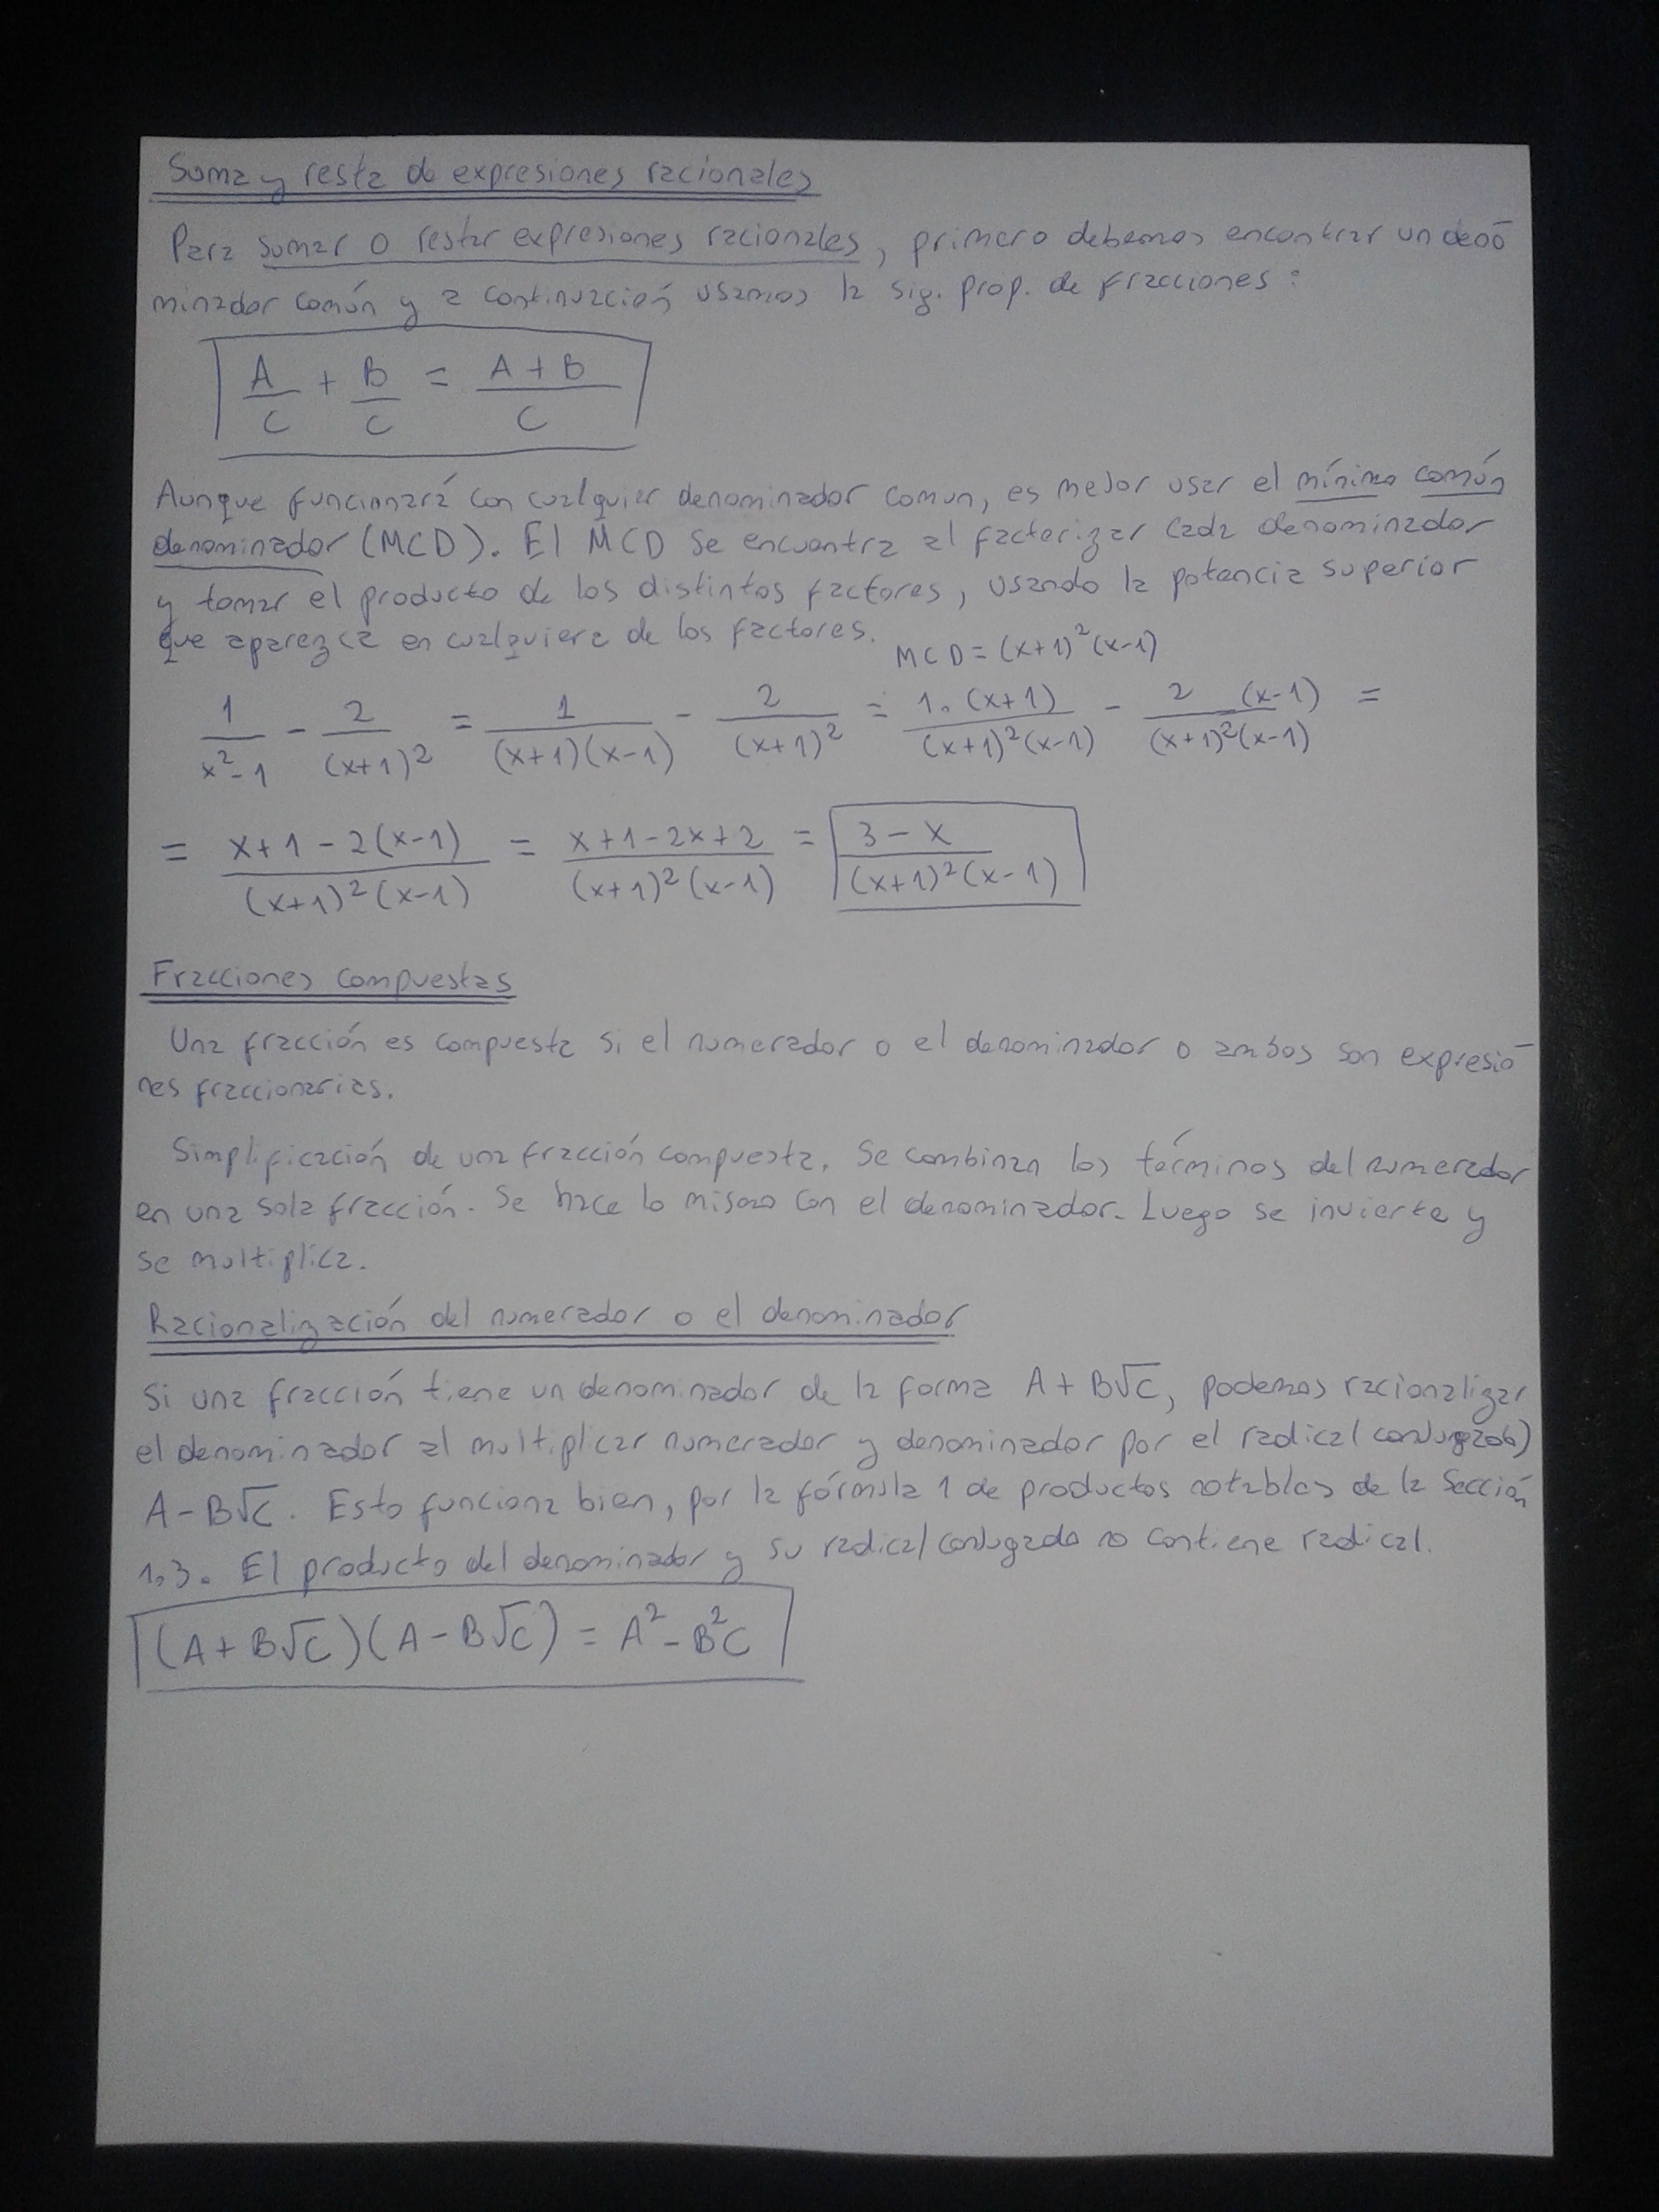 Suma y resta de expresiones racionales
Para sumar o restar expresiones racionales, primero debemos encontrar un deno
minador común y a continuación usamos la sig. prop. de fracciones:
A/C + B/C = A+B/C
Aunque funcionará con cualquier denominador comun, es mejor usar el mínimo común
denominador (MCD). El MCD se encuentra al factorizar cada denominador
y tomar el producto de los distintos factores, usando la potencia superior
que aparezca en cualquiera de los factores.
MCD = (x+1)²(x-1)
1/x²-1 - 2/(x+1)² = 1/(x+1)(x-1) - 2/(x+1)² = 1.(x+1)/(x+1)²(x-1) - 2 (x-1)/(x+1)²(x-1) =
= x+1-2(x-1)/(x+1)²(x-1) = x+1-2x+2/(x+1)²(x-1) = 3-x/(x+1)²(x-1)
Fracciones compuestas
Una fracción es compuesta si el numerador o el denominador o ambos son expresio
nes fraccionarias.
Simplificación de una fracción compuesta. Se combinan los términos del numerador
en una sola fracción. Se hace lo mismo con el denominador. Luego se invierte y
se multiplica.
Racionalización del numerador o el denominador
Si una fracción tiene un denominador de la forma A + B√C, podemos racionalizar
el denominador al multiplicar numerador y denominador por el radical conjugado
A-B√C. Esto funciona bien, por la fórmula 1 de productos notables de la Sección
1.3. El producto del denominador y su radical conjugado no contiene radical.
(A+B√C)(A-B√C) = A²-B²C